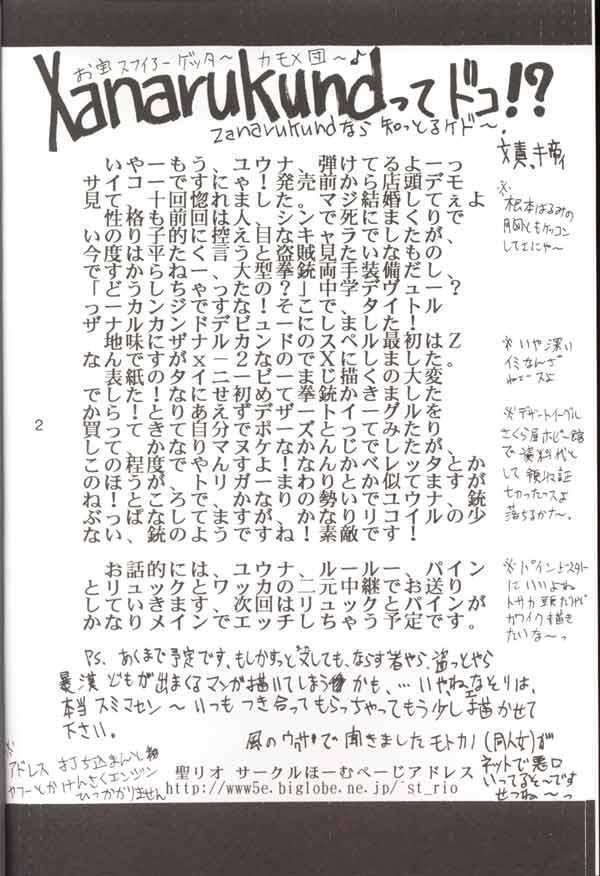 お宝スフィアーゲッタ～ カモメ団～♪
Xanarukundってドコ!?
zanarukundなら知っとるケド～.
いやーもう、ユウナ、弾けてるよーっ
サイコーですにゃ！発売前から店頭デモ
見て、十回惚れました。マジ結婚してぇよ
性格も前回は人、シンで死にまくりで
今度は平たく言うと盗賊見たいなもの
ですからねー、大型拳銃両手装備だし、
「どうしちゃったの？」中学デヴュー？
地味にザナルカンドのスペル最初はZ
なんですがx－2なのでXにしました。
でした！なにせ初めて拳銃かきました
からっ！とりあえずデザートイーグルを
買ってきて自分でポーズとってみたり
して、かなりマヌケなかんじでしたが、
この程度でやんすよ！なんかベレッタとか
のほうが、トリガーまわりとか似てますが
ね！ところで、かなりの勢いでユウナ、銃
ぶっぱなしてますが、かなりリコイルの少
ない、銃のようですね！素敵です！
お話的には、ユウナ、ルールー、パイン
とリュックとワッカの二元中継でお送り
していきます、次回はリュックとパインが
かなりメインでエッチしちゃう予定です。
PS、あくまで予定です、もしかすっと
どもが出まくるマンガ描いてしまう かも、…いやね
本当スミマセン～いつもつき合ってもらっちゃってもう少し描かせて
下さい。
風のウワサで聞きましたモトカノ(同人女)が
ネットで悪口
いってるそ～です
せつね～っ
※
根本はるみの
ケッコン
してェにゃ～
※いや深い
イミなんざ
ねェースよ
※デザートイーグル
さくら屋ホビー館
で資料代と
して領収証
切ったっスよ
落ちるかナ～。
にいいよね
トサカ頭
カワイク描き
たいな～っ
※
アドレス 打ち込まんと
ヤフーとかけんさくエンジン
ひっかかりません
聖リオ サークルほーむぺーじアドレス
http://www5e.biglobe.ne.jp/~st_rio
2